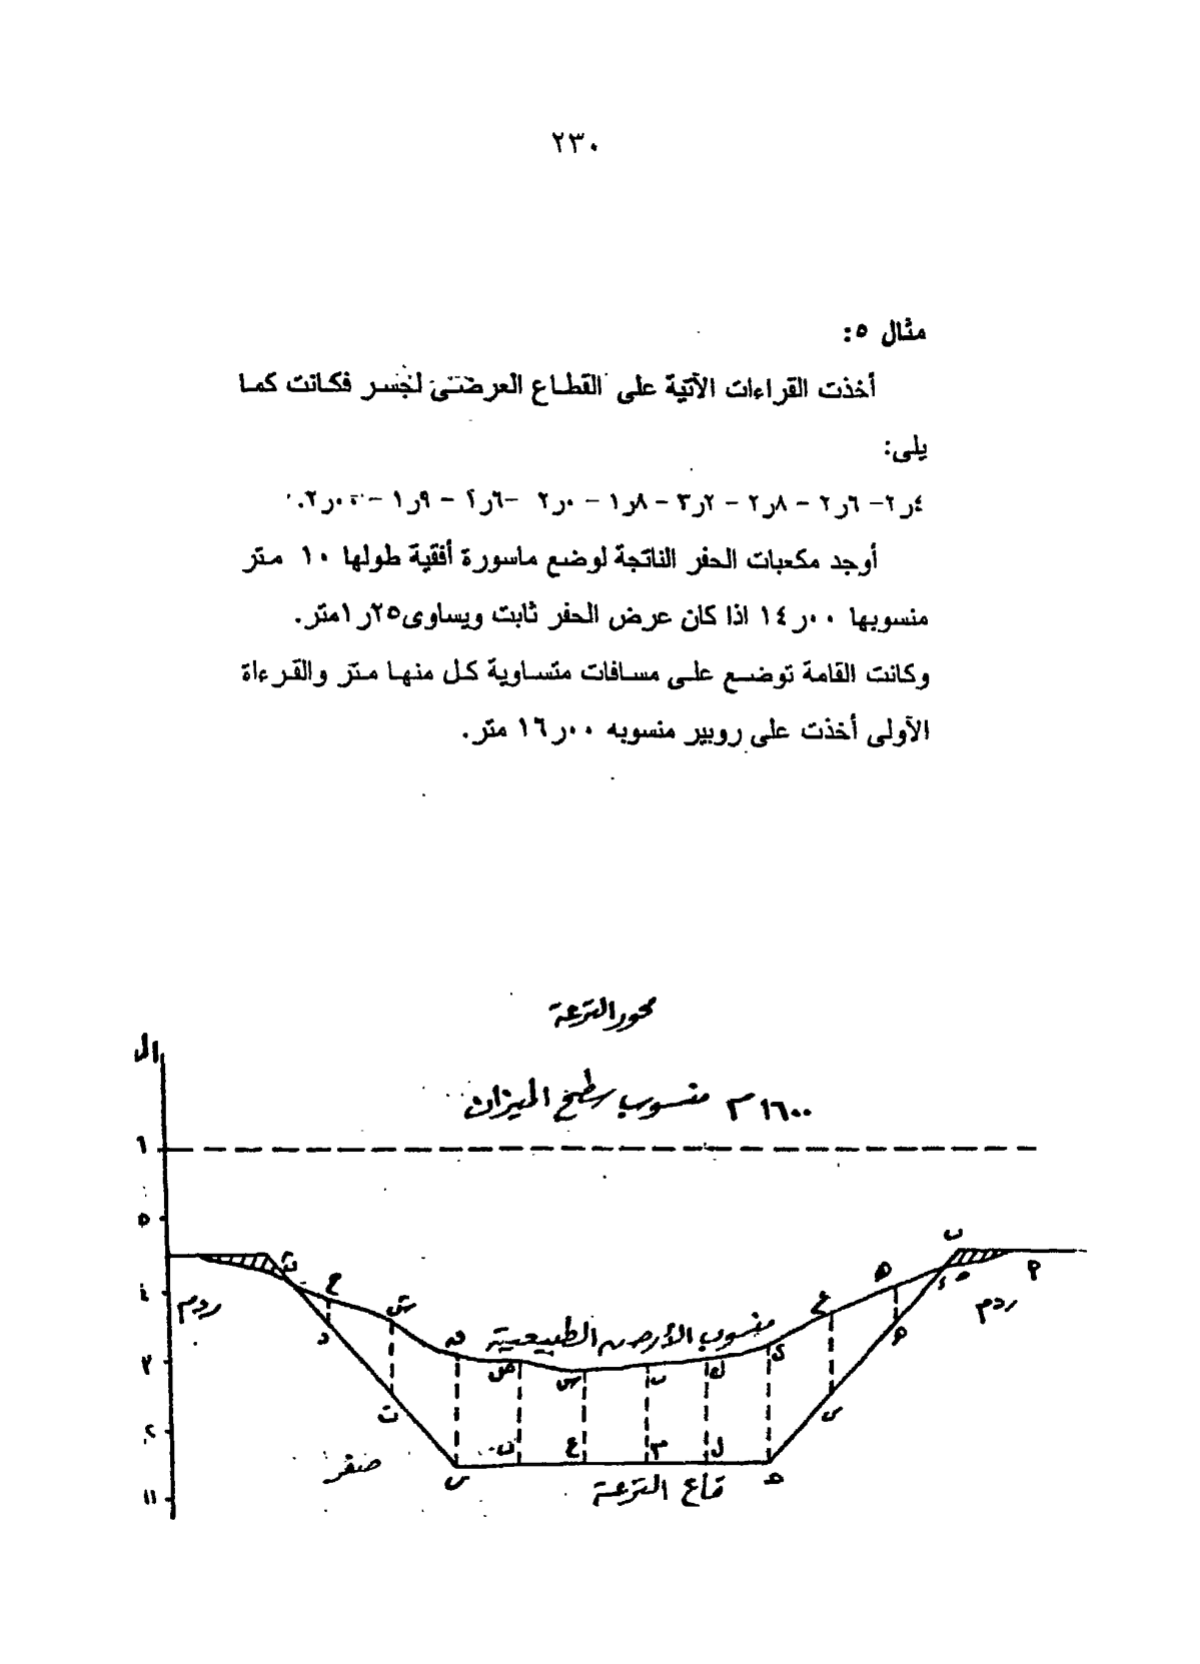 ٢٣٠
مثال ٥:
أخذت القراءات الآتية على القطاع العرضى لجسر فكانت كما
يلى:
٤ر٢- ٦ر٢ - ٨ر٢ - ٢ر٣ - ٨ر١ - ٠ر٢ -٦ر٢ - ٩ر١ - ٠ر٢.
أوجد مكعبات الحفر الناتجة لوضع ماسورة أفقية طولها ١٠ متر
منسوبها ٠٠ر١٤ اذا كان عرض الحفر ثابت ويساوى٢٥ر١متر.
وكانت القامة توضع على مسافات متساوية كل منها متر والقرءاة
الآولى أخذت على روبير منسوبه ٠٠ر١٦ متر.
محور الترعة
منسوب سطح الميزان ١٦٠٠ م
٦
٥
٤
٣
٢
١١
ردم
ردم
منسوب الأرض الطبيعية
صفر
قاع الترعة